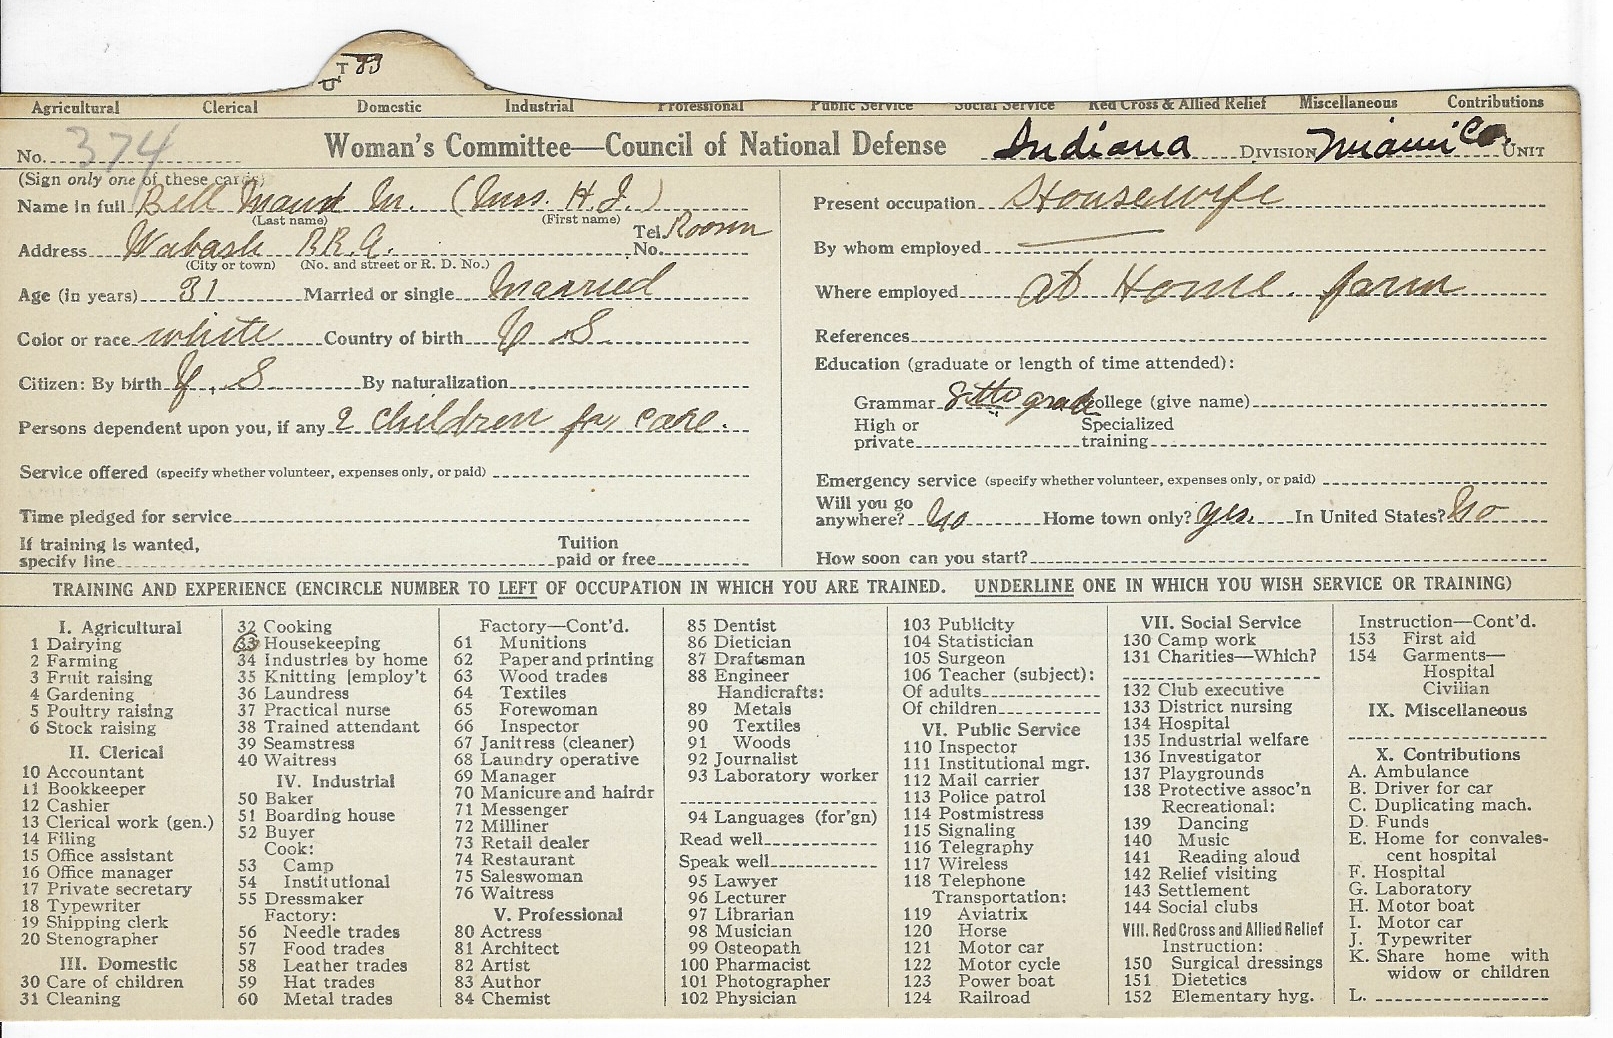 83
Agricultural Clerical Domestic Industrial Professional Public Service Social Service Red Cross & Allied Relief Miscellaneous Contributions
No. 374 Woman's Committee—Council of National Defense Indiana DIVISION Miami Co. UNIT
(Sign only one of these cards)
Name in full Bell Maud M. (Mrs. H. J.)
(Last name) (First name)
Address Wabash R.R. Tel. No. Roann
(City or town) (No. and street or R. D. No.)
Age (in years) 31 Married or single Married
Color or race white Country of birth U S
Citizen: By birth U. S By naturalization
Persons dependent upon you, if any 2 children for care.
Service offered (specify whether volunteer, expenses only, or paid)
Time pledged for service
If training is wanted, specify line Tuition paid or free
Present occupation Housewife
By whom employed
Where employed at Home. farm
References
Education (graduate or length of time attended):
Grammar 8th grade College (give name)
High or private Specialized training
Emergency service (specify whether volunteer, expenses only, or paid)
Will you go anywhere? No Home town only? yes. In United States? No
How soon can you start?
TRAINING AND EXPERIENCE (ENCIRCLE NUMBER TO LEFT OF OCCUPATION IN WHICH YOU ARE TRAINED. UNDERLINE ONE IN WHICH YOU WISH SERVICE OR TRAINING)
I. Agricultural
1 Dairying
2 Farming
3 Fruit raising
4 Gardening
5 Poultry raising
6 Stock raising
II. Clerical
10 Accountant
11 Bookkeeper
12 Cashier
13 Clerical work (gen.)
14 Filing
15 Office assistant
16 Office manager
17 Private secretary
18 Typewriter
19 Shipping clerk
20 Stenographer
III. Domestic
30 Care of children
31 Cleaning
32 Cooking
33 Housekeeping
34 Industries by home
35 Knitting [employ't
36 Laundress
37 Practical nurse
38 Trained attendant
39 Seamstress
40 Waitress
IV. Industrial
50 Baker
51 Boarding house
52 Buyer
Cook:
53 Camp
54 Institutional
55 Dressmaker
Factory:
56 Needle trades
57 Food trades
58 Leather trades
59 Hat trades
60 Metal trades
Factory—Cont'd.
61 Munitions
62 Paper and printing
63 Wood trades
64 Textiles
65 Forewoman
66 Inspector
67 Janitress (cleaner)
68 Laundry operative
69 Manager
70 Manicure and hairdr
71 Messenger
72 Milliner
73 Retail dealer
74 Restaurant
75 Saleswoman
76 Waitress
V. Professional
80 Actress
81 Architect
82 Artist
83 Author
84 Chemist
85 Dentist
86 Dietician
87 Draftsman
88 Engineer
Handicrafts:
89 Metals
90 Textiles
91 Woods
92 Journalist
93 Laboratory worker
94 Languages (for'gn)
Read well
Speak well
95 Lawyer
96 Lecturer
97 Librarian
98 Musician
99 Osteopath
100 Pharmacist
101 Photographer
102 Physician
103 Publicity
104 Statistician
105 Surgeon
106 Teacher (subject):
Of adults
Of children
VI. Public Service
110 Inspector
111 Institutional mgr.
112 Mail carrier
113 Police patrol
114 Postmistress
115 Signaling
116 Telegraphy
117 Wireless
118 Telephone
Transportation:
119 Aviatrix
120 Horse
121 Motor car
122 Motor cycle
123 Power boat
124 Railroad
VII. Social Service
130 Camp work
131 Charities—Which?
132 Club executive
133 District nursing
134 Hospital
135 Industrial welfare
136 Investigator
137 Playgrounds
138 Protective assoc'n
Recreational:
139 Dancing
140 Music
141 Reading aloud
142 Relief visiting
143 Settlement
144 Social clubs
VIII. Red Cross and Allied Relief
Instruction:
150 Surgical dressings
151 Dietetics
152 Elementary hyg.
Instruction—Cont'd.
153 First aid
154 Garments—
Hospital
Civilian
IX. Miscellaneous
X. Contributions
A. Ambulance
B. Driver for car
C. Duplicating mach.
D. Funds
E. Home for convales-
cent hospital
F. Hospital
G. Laboratory
H. Motor boat
I. Motor car
J. Typewriter
K. Share home with
widow or children
L.